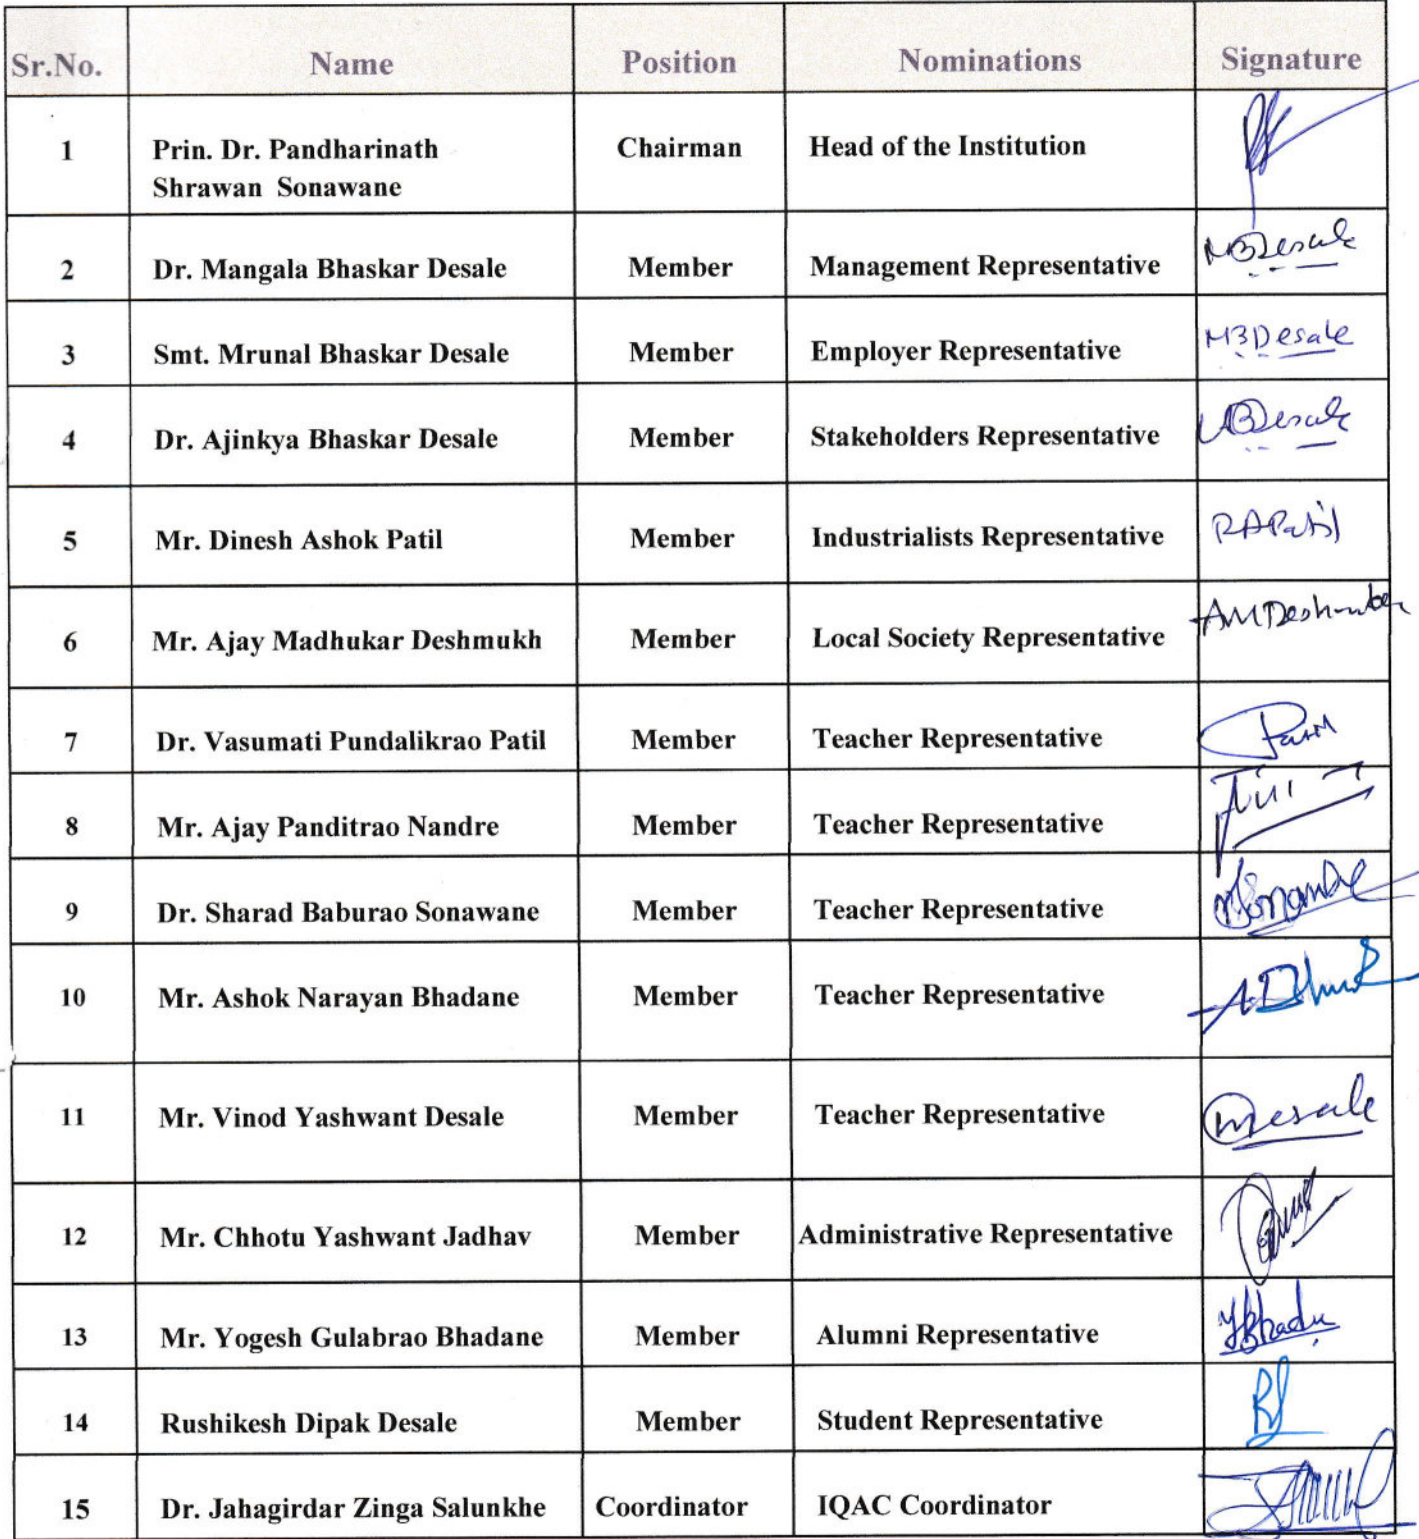 Sr.No. Name Position Nominations Signature
1 Prin. Dr. Pandharinath Chairman Head of the Institution
Shrawan Sonawane
2 Dr. Mangala Bhaskar Desale Member Management Representative MBDesale
3 Smt. Mrunal Bhaskar Desale Member Employer Representative MBDesale
4 Dr. Ajinkya Bhaskar Desale Member Stakeholders Representative ABDesale
5 Mr. Dinesh Ashok Patil Member Industrialists Representative
6 Mr. Ajay Madhukar Deshmukh Member Local Society Representative AMDeshmukh
7 Dr. Vasumati Pundalikrao Patil Member Teacher Representative
8 Mr. Ajay Panditrao Nandre Member Teacher Representative
9 Dr. Sharad Baburao Sonawane Member Teacher Representative
10 Mr. Ashok Narayan Bhadane Member Teacher Representative
11 Mr. Vinod Yashwant Desale Member Teacher Representative
12 Mr. Chhotu Yashwant Jadhav Member Administrative Representative
13 Mr. Yogesh Gulabrao Bhadane Member Alumni Representative
14 Rushikesh Dipak Desale Member Student Representative
15 Dr. Jahagirdar Zinga Salunkhe Coordinator IQAC Coordinator